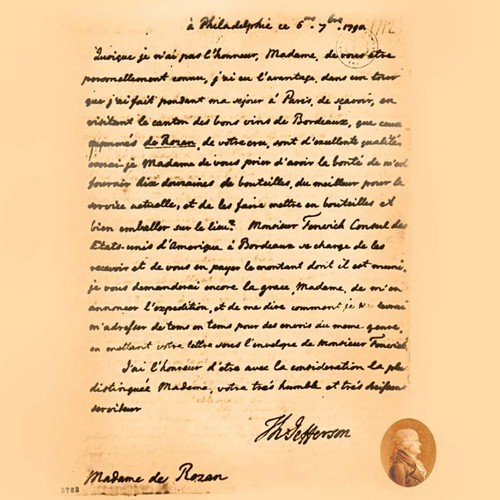 à Philadelphie ce 6me 7bre 1790
Quoique je n'ai pas l'honneur, Madame, de vous être
personellement connu, j'ai eu l'avantage, dans un tour
que j'ai fait pendant ma sejour à Paris, de sçavoir, en
visitant le canton des bons vins de Bordeaux, que ceux
de Rozan, de votre cru, sont d'excellente qualité
Madame de vous prier d'avoir la bonté de m'en
fournir dix douzaines de bouteilles, du meilleur pour le
service actuelle, et de les faire mettre en bouteilles et
bien emballer sur le lieu. Monsieur Fenwick Consul des
Etats-unis d'Amerique à Bordeaux se charge de les
recevoir et de vous en payer le montant dont il est muni.
je vous demanderai encore la grace, Madame, de m'en
annoncer l'expedition, et de me dire comment je
m'adresser de tems en tems pour des envois du meme genre,
en mettant votre lettre sous l'envelope de Monsieur Fenwick
J'ai l'honneur d'etre avec la consideration la plus
distinguée Madame, votre très humble et très
serviteur
Th Jefferson
Madame de Rozan
9783